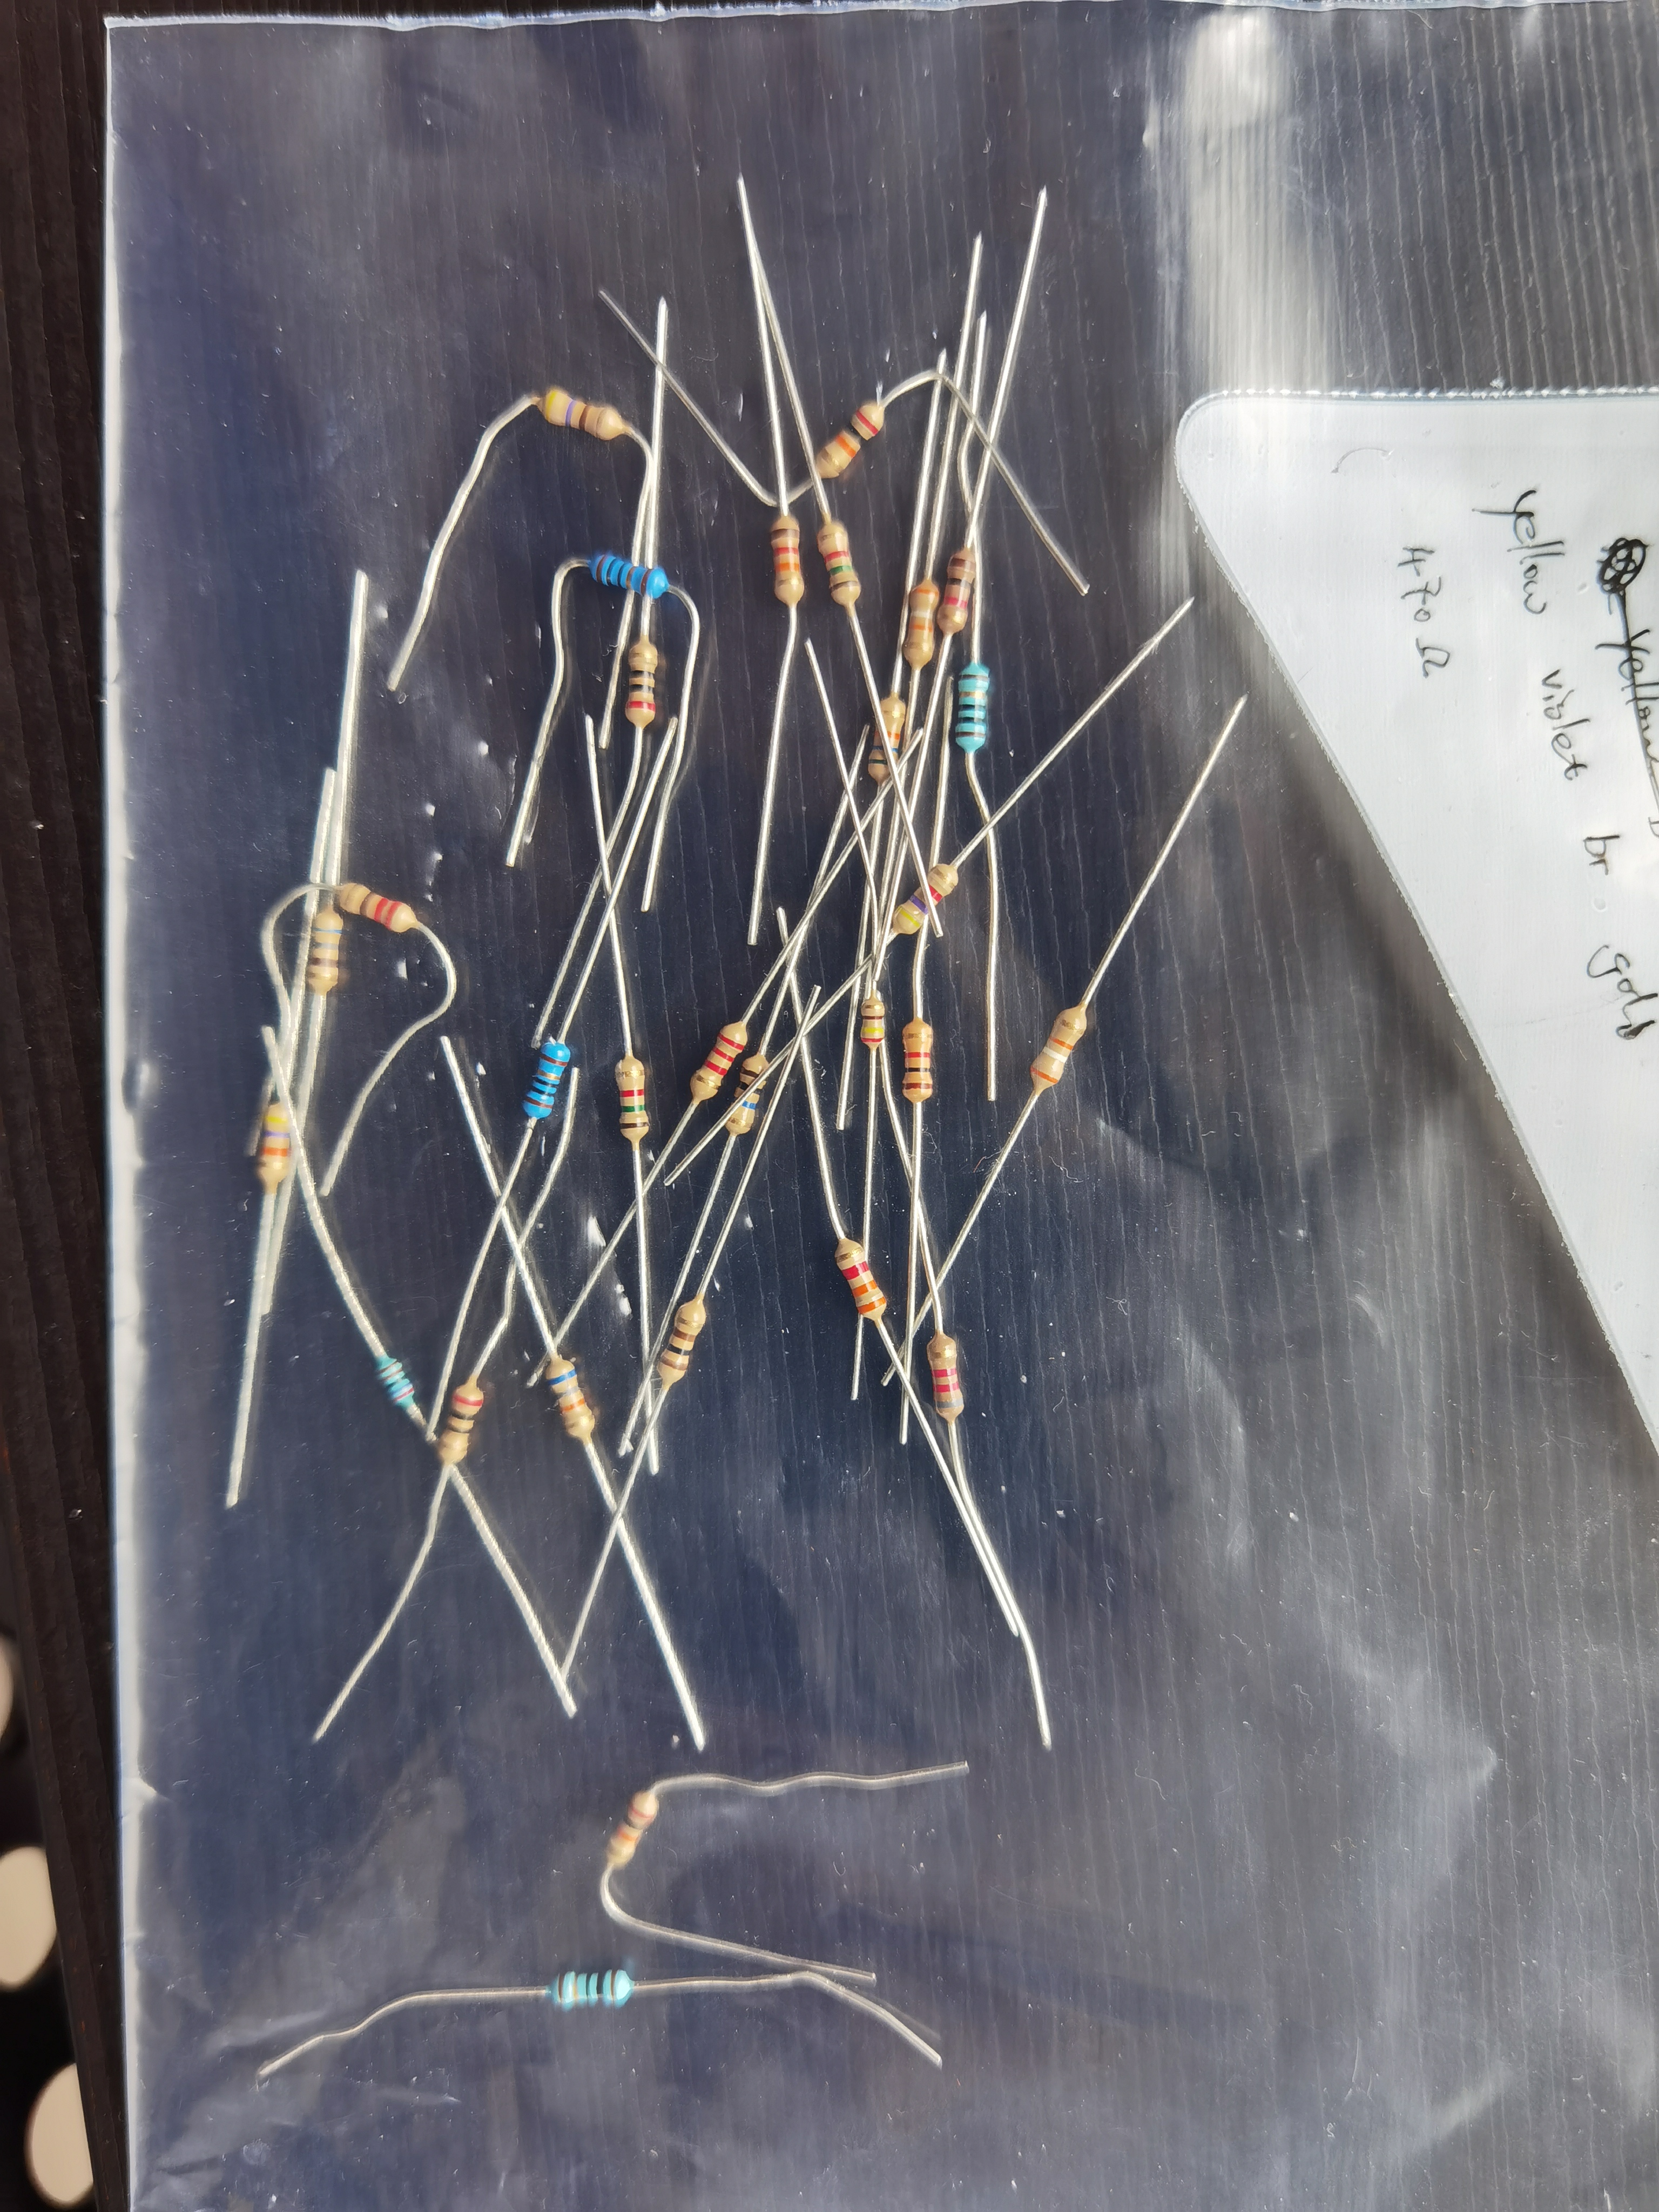 yellow
yellow violet br. gold
470 Ω